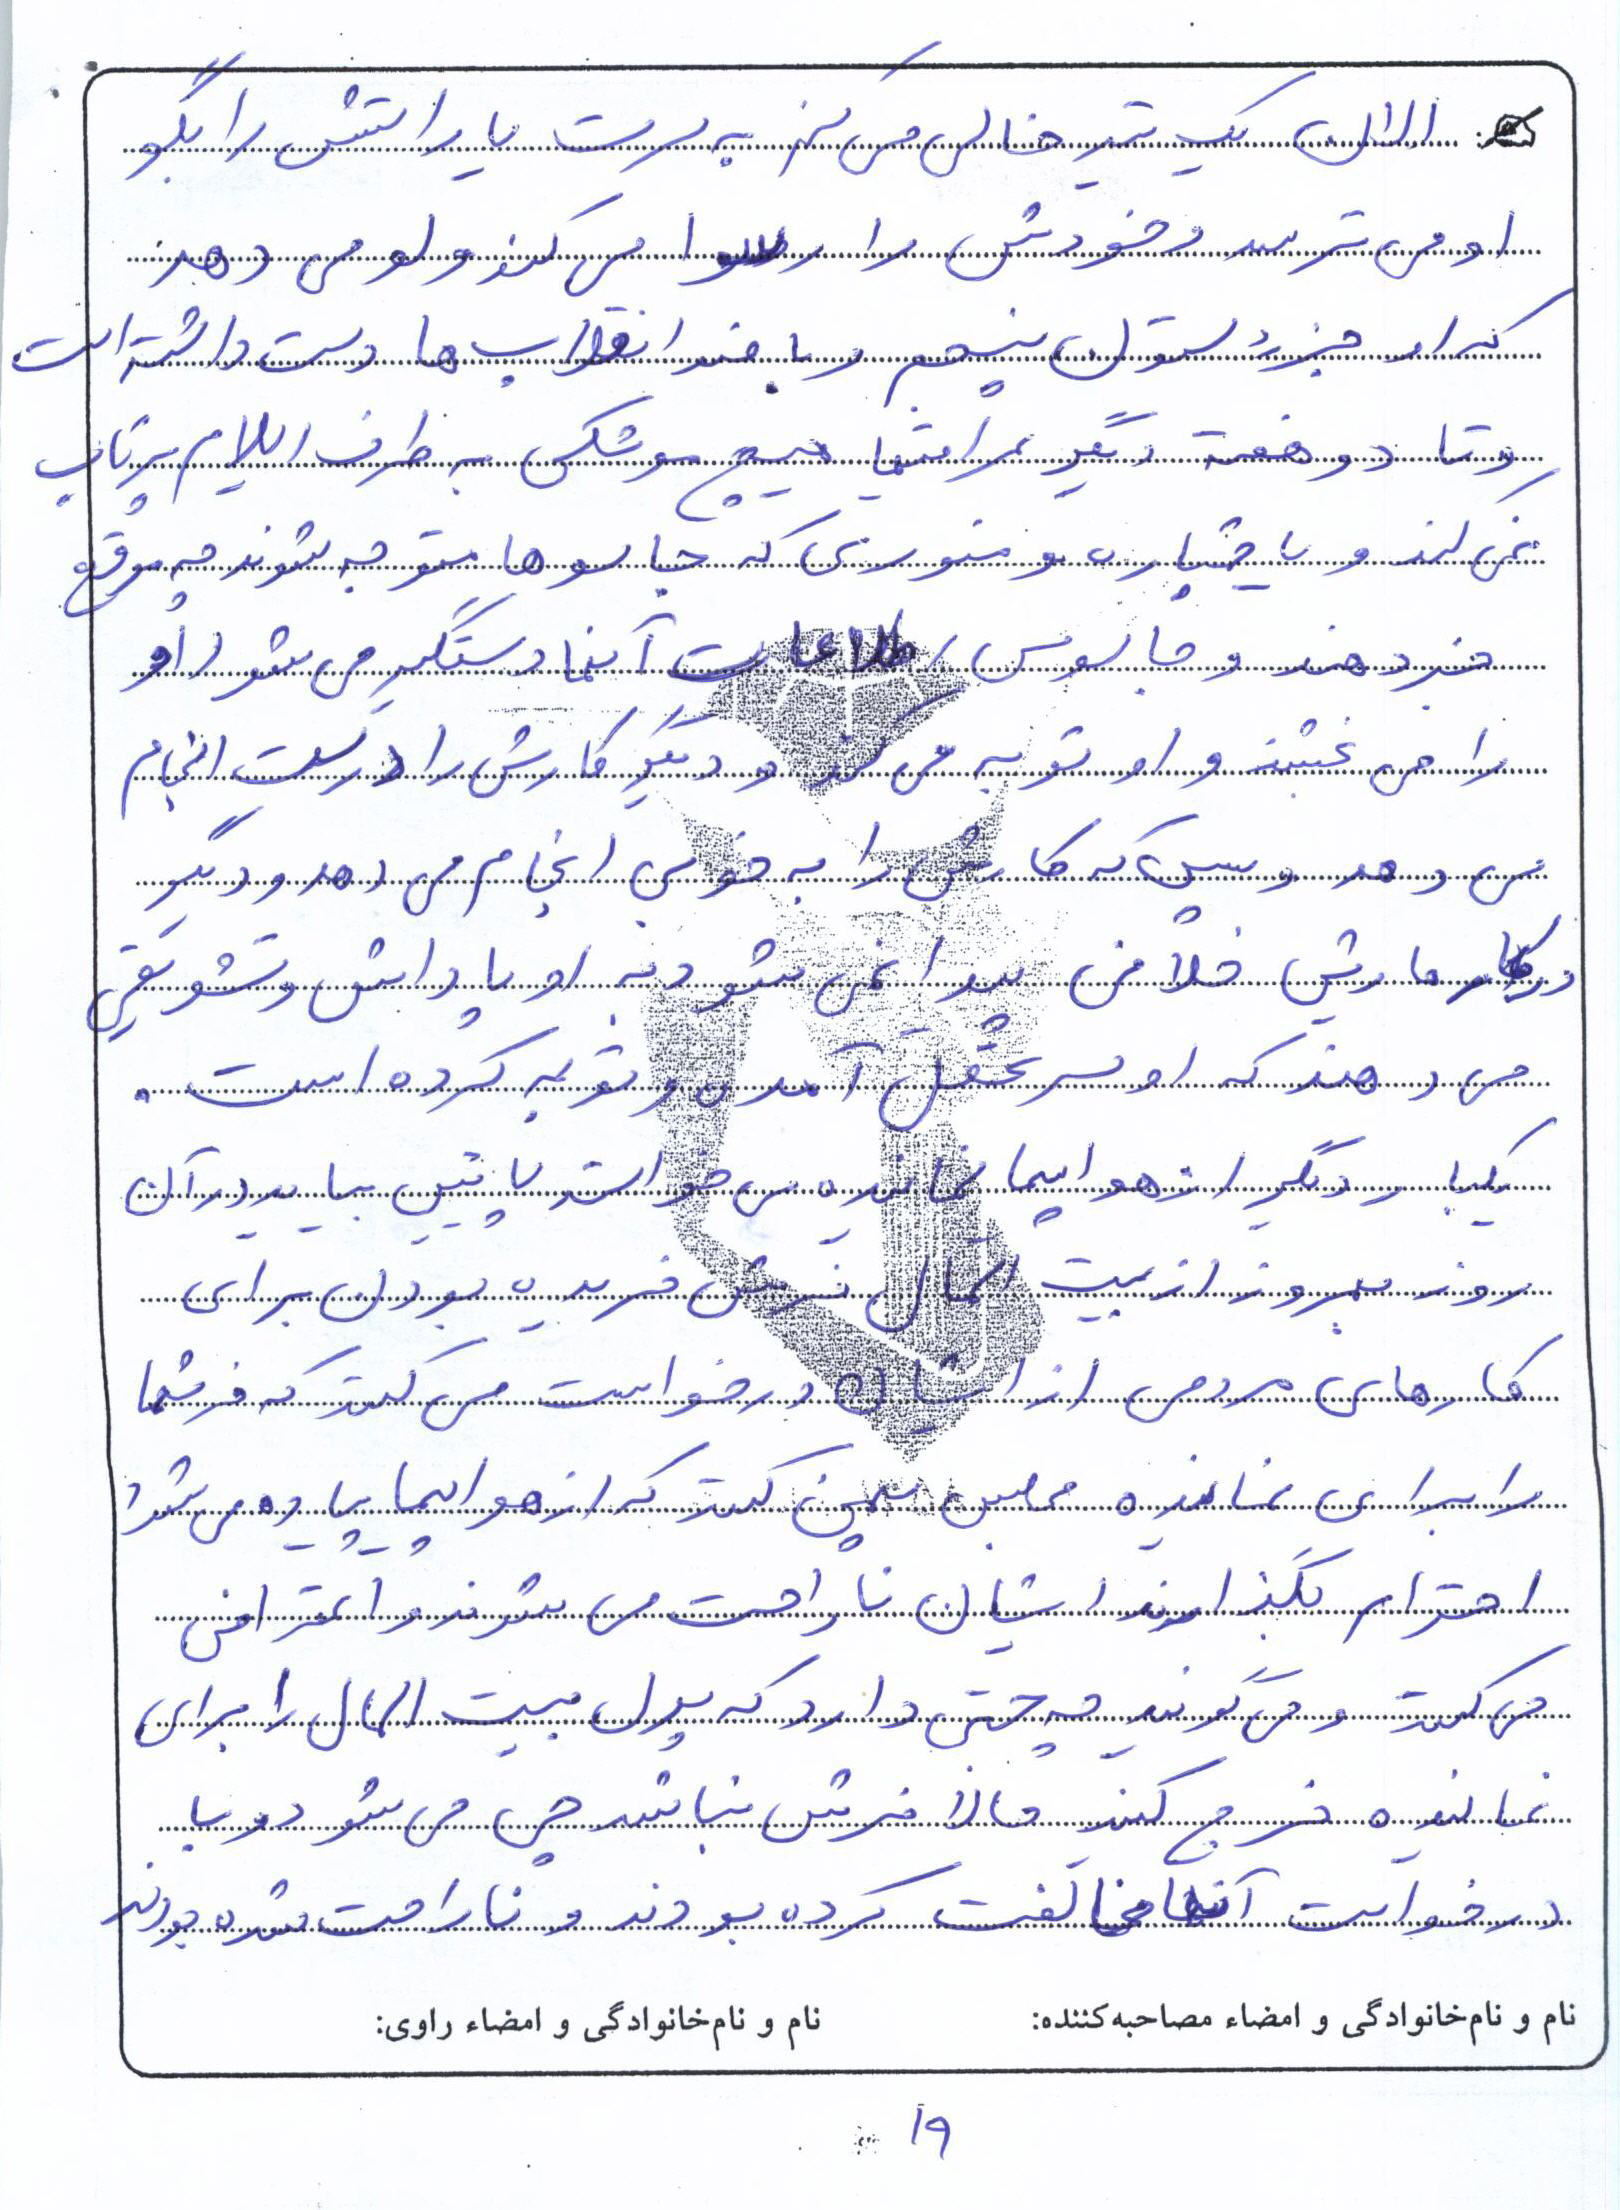 الان یک تیر خالی می کنم به سرت یا راستش را بگو
او می ترسد و خودش را رسوا می کند و لو می دهد
که او جزء ستون پنجم و با ضد انقلاب ها دست داشته است
و تا دو هفته دیگر عراقیها هیچ موشکی به طرف ایلام پرتاب
نمی کنند و با خمپاره و منوری که جاسوها متوجه شوند چه موقع
خبر دهند و جاسوس اطلاعات آنها دستگیر می شود او
را می بخشند و او توبه می کند و دیگر کارش را درست انجام
می دهد و سپس که کارش را به خوبی انجام می دهد و دیگر
در کارهایش خلافی پیدا نمی شود به او پاداش و تشویقی
می دهند که او سر عقل آمدن و توبه کرده است .
یکبار دیگر از هواپیما نماینده می خواست پائین بیاید در آن
روز بهروز از بیت المال فرش خریده بودن برای
کارهای مردمی از ایشان درخواست می کنند که فرشها
را برای نماینده مجلس پهن کنند که از هواپیما پیاده می شود
احترام بگذارند ایشان ناراحت می شوند و اعتراض
می کنند و می گویند چه حقی دارد که پول بیت المال را برای
نماینده خرج کنید حالا فرش نباشد چی می شود و با
درخواست آنها مخالفت کرده بودند و ناراحت شده بودند
نام و نام‌خانوادگی و امضاء مصاحبه‌کننده: نام و نام‌خانوادگی و امضاء راوی:
۱۹